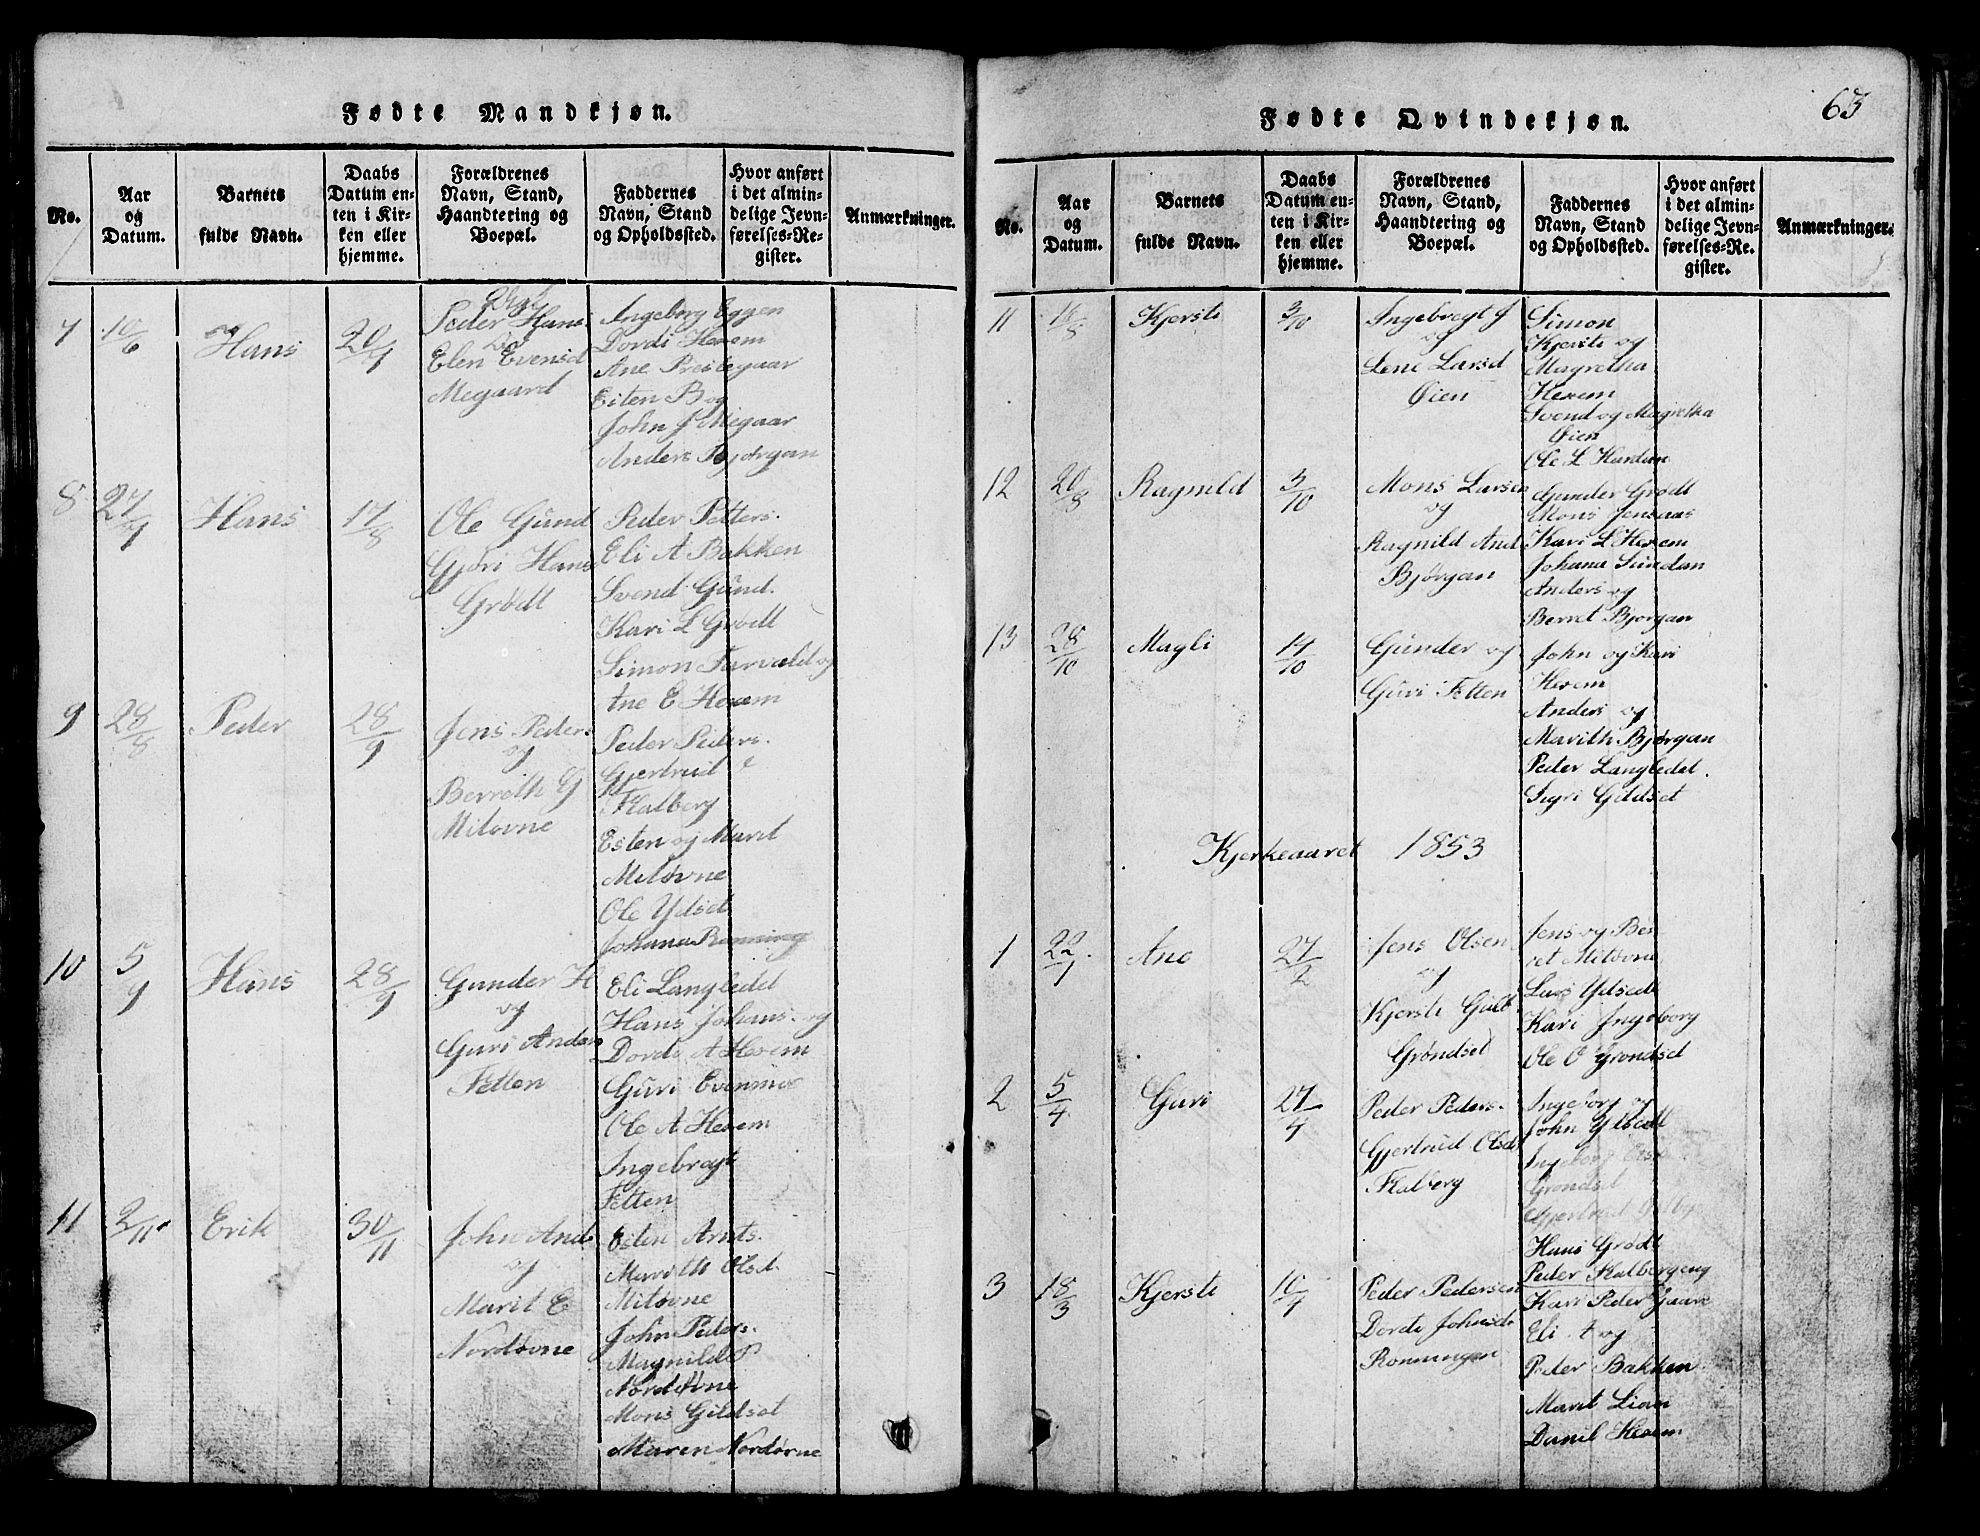 Fødte Mandkjøn.
No.
Aar
og
Datum.
Barnets
fulde Navn.
Daabs
Datum en-
ten i Kir-
ken eller
hjemme.
Forældrenes
Navn, Stand,
Haandtering og
Boepæl.
Faddernes
Navn, Stand
og Opholdssted.
Hvor anført
i det almin-
delige Jevn-
førelses-Re-
gister.
Anmærkninger.
7 10/6 Hans 20/7
Peder Hans.
Elen Evensd
Megaard
Ingeborg Eggen
Dordi Hexem
Ane Prestegaar
Esten B og
John J Megaar
Anders Bjørgan
8 27/7 Hans 17/8
Ole Gund
Gjøri Hans
Grødt
Peder Petters.
Eli A Bakken
Svend Gund.
Kari L Grødt
Simon Farvald og
Ane E Hexem
9 28/8 Peder 28/9
Jens Peders
og
Berreth G
Mitovne
Peder Peders.
Gjertrud
Flatberg
Esten og Marit
Mitøvne
Ole Ydset
Johana Rønning
10 5/9 Hans 28/9
Gunder H
og
Guri Anders
Fetten
Eli Langledet
Hans Johans. og
Dordi A Hexem
Guri Evenmo
Ole A Hexem
Ingebregt
Fetten
11 2/11 Erik 30/11
John And.
og
Marit E
Nordøvne
Esten Arnts.
Marith Olsd.
Mitøvne
John Peders.
Magnild P
Nordøvne
Mons Gildset
Maren Nordøvne
63
Fødte Qvindekjøn.
No.
Aar
og
Datum.
Barnets
fulde Navn.
Daabs
Datum en-
ten i Kir-
ken eller
hjemme.
Forældrenes
Navn, Stand,
Haandtering og
Boepæl.
Faddernes
Navn, Stand
og Opholdssted.
Hvor anført
i det almin-
delige Jevn-
førelses-Re-
gister.
Anmærkninger.
11 16/8 Kjersti 3/10
Ingebregt J
og
Lene Larsd
Øien
Simon
Kjersti og
Magretha
Hexem
Svend og Magretha
Øien
Ole L Hardan
12 20/8 Ragnild 3/10
Mons Larsen
og
Ragnild And
Bjørgan
Gunder Grødt
Mons Jensaas
Kari L Hexem
Johana Sundan
Anders og
Berret Bjorgan
13 28/10 Magli 14/10
Gunder og
Guri Fetten
John og Kari
Hexem
Anders og
Marith Bjørgan
Peder Langledet.
Sigri Gildset
Kjerkeaaret 1853
1 22/1 Ane 27/2
Jens Olsen
og
Kjersti Guldb
Grøndset
Jens og Ber
ret Mitovne
Lars Ydsedt
Kari Ingeborg
Ole O Grondset
2 5/4 Guri 27/4
Peder Peders.
Gjertrud Olsd.
Flatberg
Ingeborg og
John Ydsedt
Ingeborg
Grondset
Gjertrud
Hans Grødt
3 18/3 Kjersti 10/4
Peder Pedersen
Dordi Johnsd
Ronningen
Peder Flatbergeng
Kari Peder Gaare
Eli A og
Peder Bakken.
Marit Lian
Danil Hexem